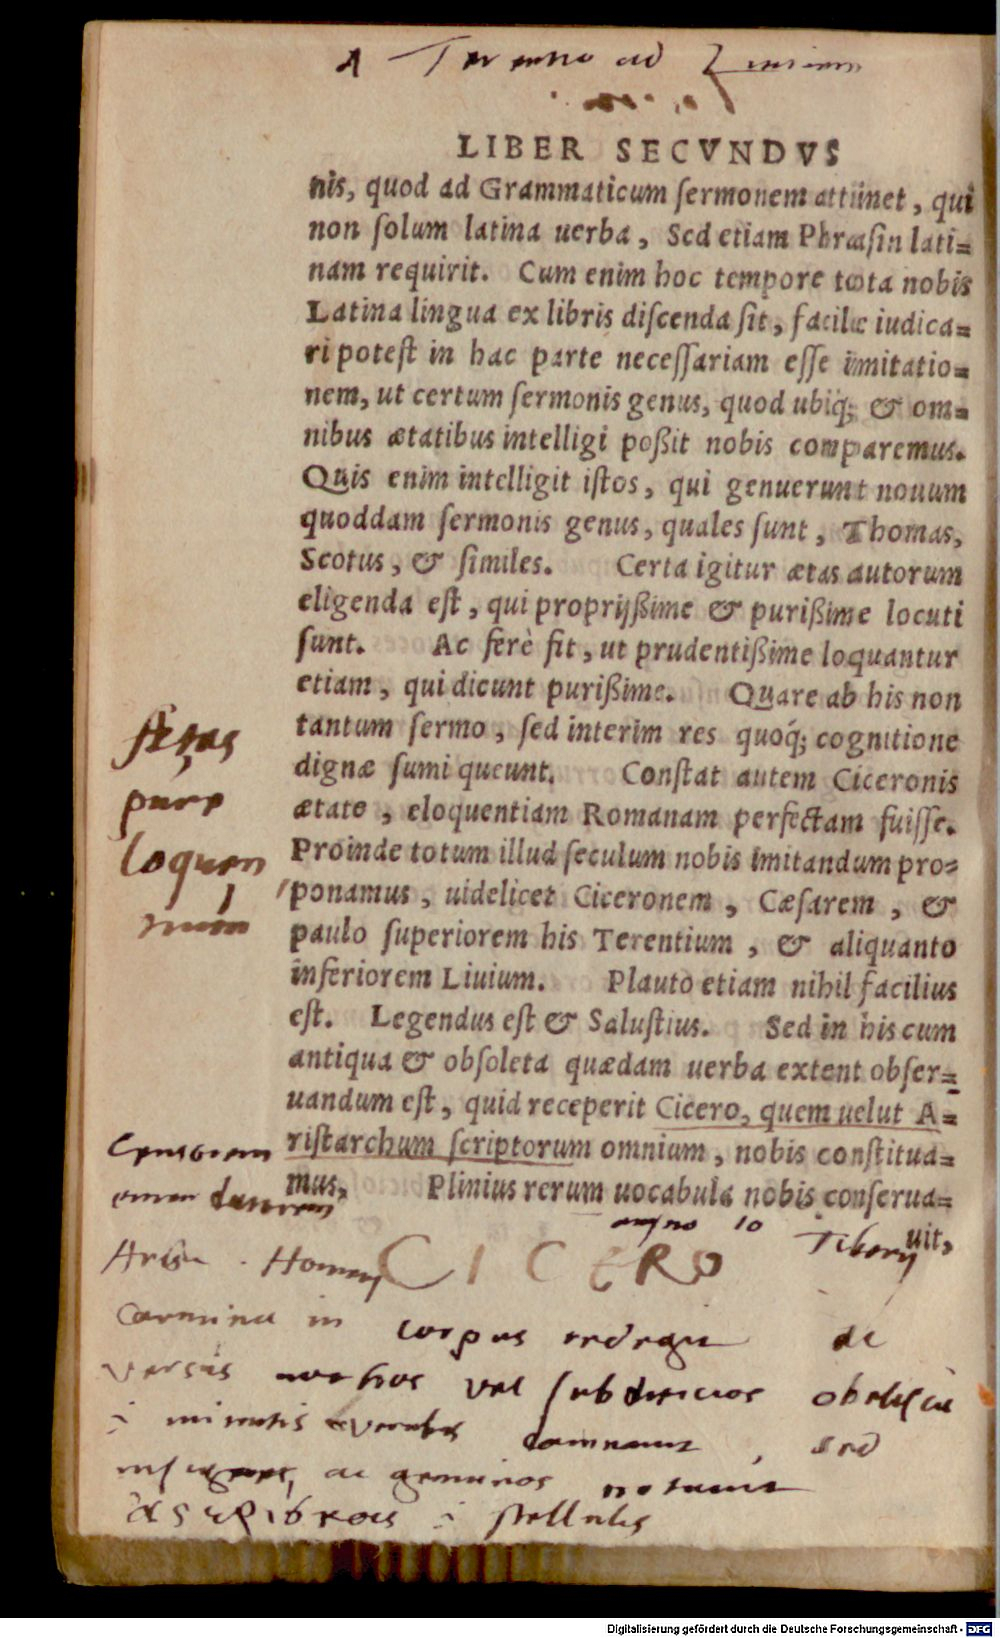 A Terentio ad Liuium
LIBER SECVNDVS
nis, quod ad Grammaticum ſermonem attinet, qui
non ſolum latina uerba, Sed etiam Phraſin lati=
nam requirit. Cum enim hoc tempore tota nobis
Latina lingua ex libris diſcenda ſit, facile iudica=
ri poteſt in hac parte neceſſariam eſſe imitatio=
nem, ut certum ſermonis genus, quod ubiq; & om=
nibus ætatibus intelligi poßit nobis comparemus.
Quis enim intelligit iſtos, qui genuerunt nouum
quoddam ſermonis genus, quales ſunt, Thomas,
Scotus, & ſimiles. Certa igitur ætas autorum
eligenda eſt, qui proprijßime & purißime locuti
ſunt. Ac ferè fit, ut prudentißime loquantur
etiam, qui dicunt purißime. Quare ab his non
tantum ſermo, ſed interim res quoq́; cognitione
dignæ ſumi queunt. Conſtat autem Ciceronis
ætate, eloquentiam Romanam perfectam fuiſſe.
Proinde totum illud ſeculum nobis imitandum pro=
ponamus, uidelicet Ciceronem, Cæſarem, &
paulo ſuperiorem his Terentium, & aliquanto
inferiorem Liuium. Plauto etiam nihil facilius
eſt. Legendus eſt & Saluſtius. Sed in his cum
antiqua & obſoleta quædam uerba extent obſer=
uandum eſt, quid receperit Cicero, quem uelut A=
riſtarchum ſcriptorum omnium, nobis conſtitua=
mus. Plinius rerum uocabula nobis conſerua=
uit,
pure
loquen
Censorem
10 Tiberij
CICERO
Carmina in corpus redegit de
versus nothos vel subditicios obeliscis
i minutis verubus damnauit, sed
insignes, ac genuinos notauit
i stellulis
Digitalisierung gefördert durch die Deutsche Forschungsgemeinschaft - DFG